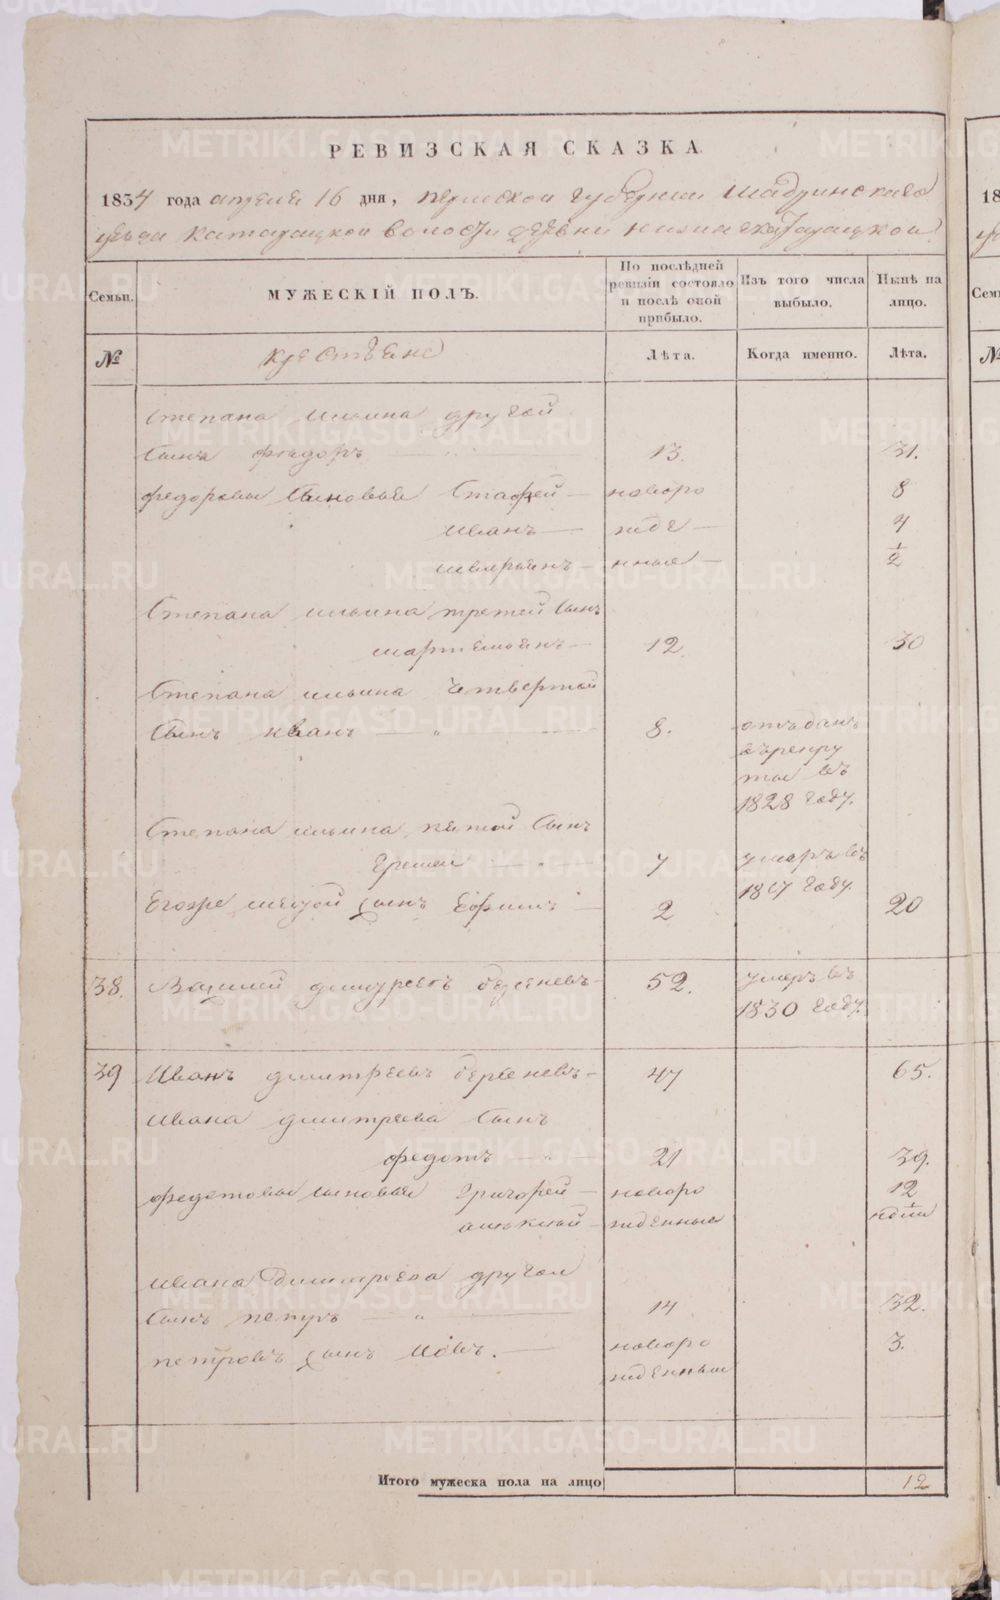 РЕВИЗСКАЯ СКАЗКА.
1834 года апреля 16 дня, пермской губернии Шадринскаго
уезда катайацкой волости деревни нижна
Семьи.
МУЖЕСКІЙ ПОЛЪ.
По послѣдней ревизіи состояло и послѣ оной прибыло.
Изъ того числа выбыло.
Нынѣ на лицо.
№
крестьяне
Лѣта.
Когда именно.
Лѣта.
Степана ильина другой
сынъ фиодоръ 13. 31.
федоровы сыновья Стафей новоро 8
иванъ жде 4
нныя 1/2
Степана ильина третей сынъ
мартемьянъ 12. 30
Степана ильина четвертой
сынъ иванъ " 8. отъданъ
въ рекру
ты въ
1828 году.
Степана ильина пятой сынъ
Еремей 7 умеръ въ
1817 году.
Егоже шестой сынъ Ефимъ 2 20
38. дмитреевъ берсеневъ 52. умеръ въ
1830 году.
39 Иванъ дмитреевъ берсеневъ 47 65.
ивана дмитреева сынъ
федотъ 21 39.
федотовы сыновья Григорей новоро 12
жденныя 1
ивана Димитреева другой
сынъ петръ " 14 32.
петровъ сынъ Иовъ. новоро 3.
жденный
Итого мужеска пола на лицо 12
METRIKI.GASO-URAL.RU